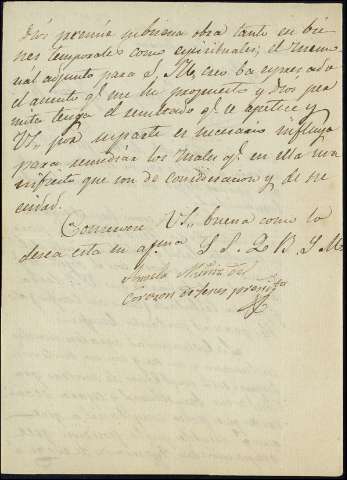 Dios premie su buena obra tanto en bie-
nes temporales como espirituales; el memo-
rial adjunto para S. M. creo ba espresado
el asunto q.e me he propuesto y Dios per-
mita tenga el resultado q.e se apetece y
VS., por su parte es necesario influya
para remediar los males q.e en ella ma-
nifiesto que son de consideracion y de ne
cedad.
Conserve VS. buena como lo
desea esta su af.ma S. S. Q. B. S. M.
Muñoz del
Corazon de Jesus presid.ta